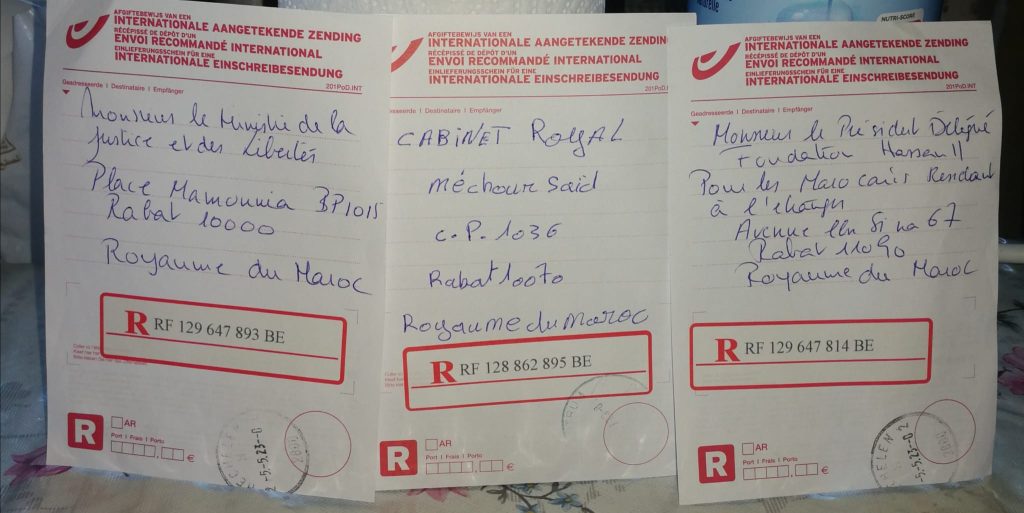 AFGIFTEBEWIJS VAN EEN
INTERNATIONALE AANGETEKENDE ZENDING
RÉCÉPISSÉ DE DÉPÔT D'UN
ENVOI RECOMMANDÉ INTERNATIONAL
EINLIEFERUNGSSCHEIN FÜR EINE
INTERNATIONALE EINSCHREIBESENDUNG
201PoD.INT
Geadresseerde | Destinataire | Empfänger
Monsieur le Ministre de la
justice et des libertés
Place Mamounia BP1015
Rabat 10000
Royaume du Maroc
R RF 129 647 893 BE
R
AR
Port | Frais | Porto
€
-5.-5.23-
AFGIFTEBEWIJS VAN EEN
INTERNATIONALE AANGETEKENDE ZENDING
RÉCÉPISSÉ DE DÉPÔT D'UN
ENVOI RECOMMANDÉ INTERNATIONAL
EINLIEFERUNGSSCHEIN FÜR EINE
INTERNATIONALE EINSCHREIBESENDUNG
201PoD.INT
Geadresseerde | Destinataire | Empfänger
CABINET ROYAL
Méchouar Saïd
C.P. 1036
Rabat 10070
Royaume du Maroc
R RF 128 862 895 BE
R
AR
Port | Frais | Porto
€
NUTRI-SCORE
AFGIFTEBEWIJS VAN EEN
INTERNATIONALE AANGETEKENDE ZENDING
RÉCÉPISSÉ DE DÉPÔT D'UN
ENVOI RECOMMANDÉ INTERNATIONAL
EINLIEFERUNGSSCHEIN FÜR EINE
INTERNATIONALE EINSCHREIBESENDUNG
201PoD.INT
Geadresseerde | Destinataire | Empfänger
Monsieur le Président Délégué
Fondation Hassan II
Pour les Marocains Résidant
à l'étranger
Avenue Ibn Sina 67
Rabat 11090
Royaume du Maroc
R RF 129 647 814 BE
R
AR
Port | Frais | Porto
€